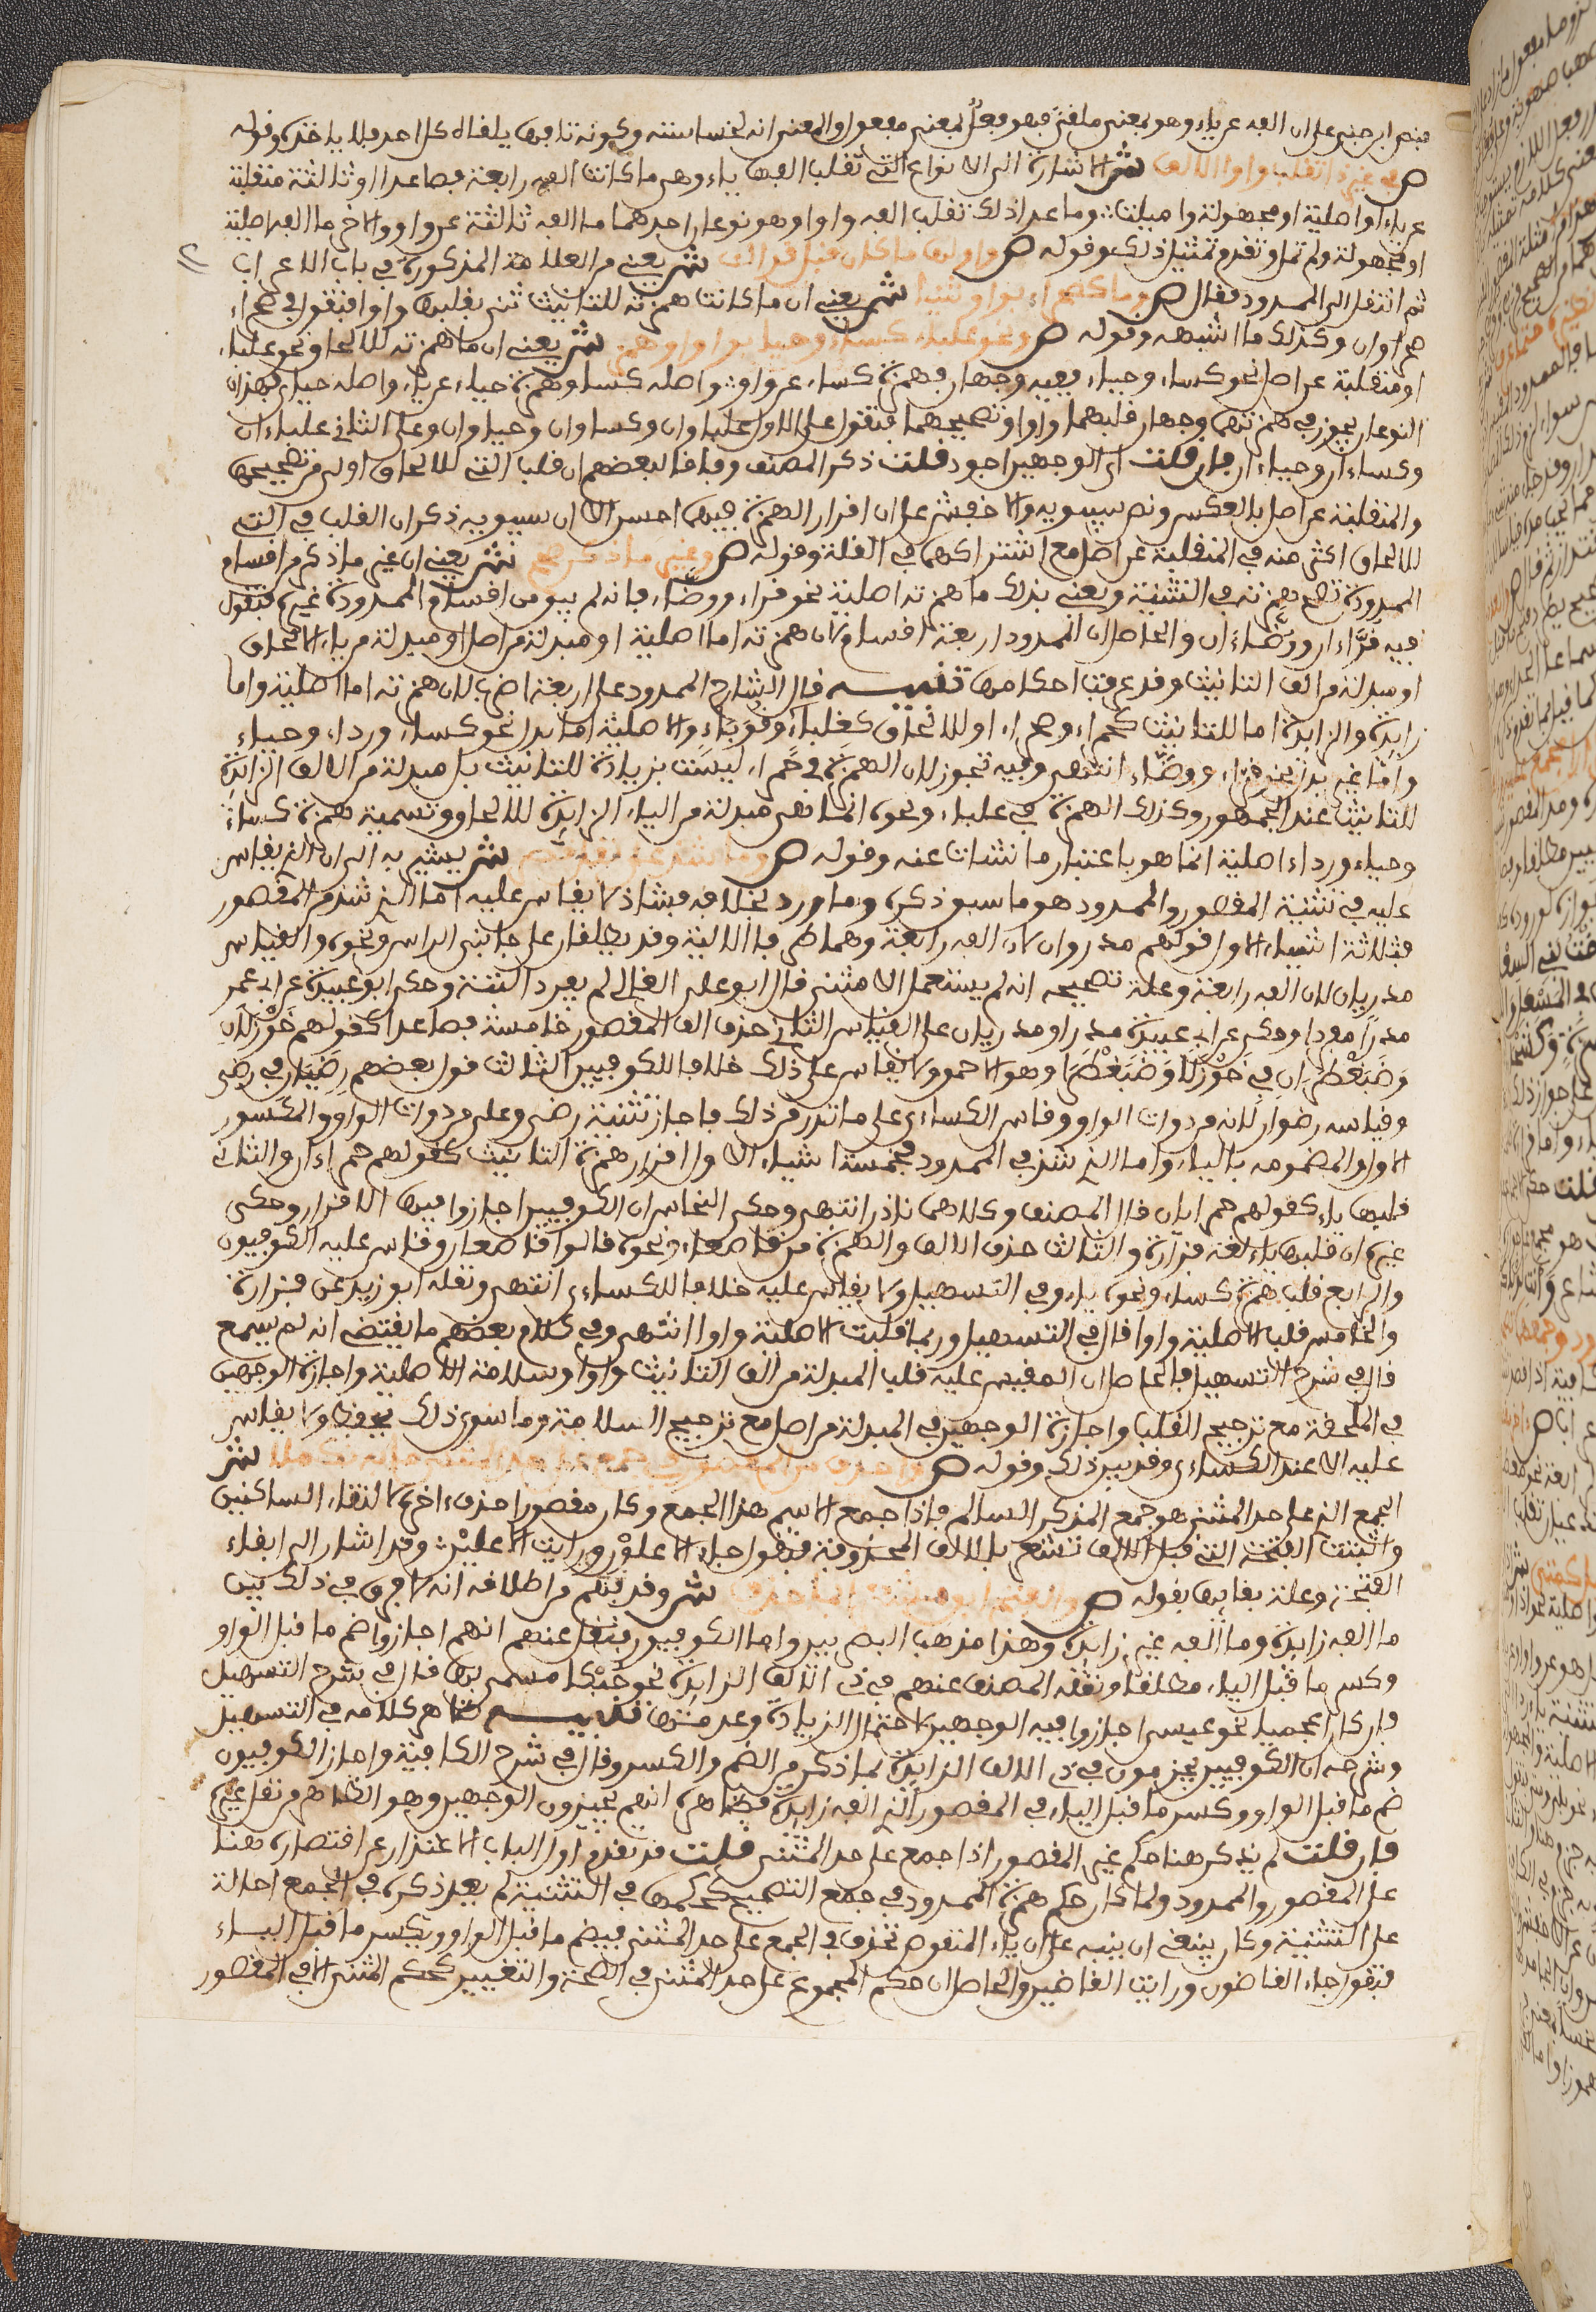 فنص ابن جني على ان الفه عن ياء وهو بمعنى ملقى فهو فعل بمعنى مفعول والمعنى انه لخساسته وكونه تافها يلقاه كل احد فلا ياخذه وقوله
ص في غير ذا تقلب واوا الالف ش الاشارة الى الانواع التي تقلب الفها ياء وهي ما كانت الفه رابعة فصاعدا او ثالثة منقلبة
عن ياء او اصلية او مجهولة واميلت وما عدا ذلك تقلب الفه واوا وهو نوعان احدهما ما الفه ثالثة عن واو والاخر ما الفه اصلية
او مجهولة ولم تمل وتقدم تمثيل ذلك وقوله ص واولها ما كان قبل قد الف ش يعني من العلامة المذكورة في باب الاعراب
ثم انتقل الى الممدود فقال ص وما كصحراء بواو ثنيا ش يعني ان ما كانت همزته للتانيث ثني بقلبها واوا فتقول في صحراء
صحراوان وكذلك ما اشبهه وقوله ص ونحو علباء كساء وحيا بواو او همز ش يعني ان ما همزته للالحاق نحو علباء
او منقلبة عن اصل نحو كساء وحياء ففيه وجهان فهمزة كساء عن واو واصله كساو وهمزة حياء عن ياء واصله حياي فهذان
النوعان يجوز في همزتهما وجهان قلبهما واوا وتصحيحهما فتقول على الاول علباوان وكساوان وحياوان وعلى الثاني علباءان
وكساءان وحياءان فان قلت اي الوجهين اجود قلت ذكر المصنف وفاقا لبعضهم ان قلب التي للالحاق اولى من تصحيحها
والمنقلبة عن اصل بالعكس ونص سيبويه والاخفش على ان اقرار الهمزة فيها احسن الا ان سيبويه ذكر ان القلب في التي
للالحاق اكثر منه في المنقلبة عن اصل مع اشتراكهما في القلة وقوله ص وغير ما ذكر صحح ش يعني ان غير ما ذكر من اقسام
الممدود تصح همزته في التثنية ويعني بذلك ما همزته اصلية نحو قراء ووضاء فانه لم يبق من اقسام الممدود غيره فتقول
فيه قراءان ووضاءان والحاصل ان الممدود اربعة اقسام لان همزته اما اصلية او مبدلة من اصل او مبدلة من ياء الالحاق
او مبدلة من الف التانيث وقد عرفت احكامها تنبيه قال الشارح الممدود على اربعة اضرب لان همزته اما اصلية واما
زايدة والزايدة اما للتانيث كحمراء وصحراء او للالحاق كعلباء وقوباء والاصلية اما بدل نحو كساء ورداء وحياء
واما غير بدل نحو قراء ووضاء انتهى وفيه تجوز لان الهمزة في حمراء ليست بزيادة للتانيث بل مبدلة من الالف الزايدة
للتانيث عند الجمهور وكذلك الهمزة في علباء ونحوه انما هي مبدلة من الياء الزايدة للالحاق وتسمية همزة كساء
وحياء ورداء اصلية انما هو باعتبار ما نشات عنه وقوله ص وما شذ على نقل قصر ش يشير به الى ان الذي يقاس
عليه في تثنية المقصور والممدود هو ما سبق ذكره وما ورد بخلافه فشاذ لا يقاس عليه اما الذي شذ من المقصور
فثلاثة اشياء الاول قولهم مذروان لان الفه رابعة وهما طرفا الالية وقد يطلقان على جانبي الراس ونحوه والقياس
مذريان لان الفه رابعة وعلة تصحيحه انه لم يستعمل الا مثنى قال ابو علي القالي لم يفرد البتة وحكى ابو عبيدة عن ابي عمرو
مذرا مفردا وحكي عن ابي عبيدة مذرا ومذريان على القياس الثاني حذف الف المقصور خامسة فصاعدا كقولهم خوزلان
وضبغطران في خوزلا وضبغطرا وهو الاحمق ولا يقاس على ذلك خلافا للكوفيين الثالث قول بعضهم رضيان في رضى
وقياسه رضوان لانه من ذوات الواو وقاس الكساءي على ما ندر من ذلك فاجاز تثنية رضى وعلى من ذوات الواو المكسور
الاول والمضمومه بالياء واما الذي شذ في الممدود فخمسة اشياء الاول اقرار همزة التانيث كقولهم حمراءان والثاني
قلبها ياء كقولهم حمرايان قال المصنف وكلاهما نادر انتهى وحكى النحاس ان الكوفيين اجازوا فيها الاقرار وحكى
غيره ان قلبها ياء لغة فزارة والثالث حذف الالف والهمزة من قاصعاء ونحوه قالوا قاصعان وقاس عليه الكوفيون
والرابع قلب همزة كساء ونحوه ياء وفي التسهيل ولا يقاس عليه خلافا للكساءي انتهى ونقله ابو زيد عن فزارة
والخامس قلب الاصلية واوا قال في التسهيل وربما قلبت الاصلية واوا انتهى وفي كلام بعضهم ما يقتضي انه لم يسمع
قال في شرح التسهيل فالحاصل ان المقيس عليه قلب المبدلة من الف التانيث واوا وسلامة الاصلية واجازة الوجهين
في الملحقة مع ترجيح القلب واجازة الوجهين في المبدلة من اصل مع ترجيح السلامة وما سوى ذلك يحفظ ولا يقاس
عليه الا عند الكساءي وقد بين ذلك وقوله ص واحذف من المقصور في جمع على حد المثنى ما به تكملا ش
الجمع الذي على حد المثنى هو جمع المذكر السالم فاذا جمع الاسم هذا الجمع وكان مقصورا حذف اخره لالتقاء الساكنين
واثبتت الفتحة التي قبل الالف تشعر بالالف المحذوفة فتقول جاء الاعلون ورايت الاعلين وقد اشار الى ابقاء
الفتحة وعلة بقايها بقوله ص والفتح ابق مشعرا بما حذف ش وقد فهم من اطلاقه انه لا فرق في ذلك بين
ما الفه زايدة وما الفه غير زايدة وهذا مذهب البصريين واما الكوفيون فنقل عنهم انهم اجازوا ضم ما قبل الواو
وكسر ما قبل الياء مطلقا ونقله المصنف عنهم في ذي الالف الزايدة نحو حبلى مسمى بها قال في شرح التسهيل
فان كان اعجميا نحو عيسى اجازوا فيه الوجهين لاحتمال الزيادة وعدمها تنبيه ظاهر كلامه في التسهيل
وشرحه ان الكوفيين يجزمون في ذي الالف الزايدة بما ذكر من الضم والكسر وقال في شرح الكافية واجاز الكوفيون
ضم ما قبل الواو وكسر ما قبل الياء في المقصور الذي الفه زايدة فظاهره انهم يجيزون الوجهين وهو الظاهر من نقل غيره
فان قلت لم يذكر هنا حكم غير المقصور اذا جمع على حد المثنى قلت قد تقدم اول الباب الاعتذار عن اقتصاره هنا
على المقصور والممدود ولما كان حكم همزة الممدود في جمع التصحيح كحكمها في التثنية لم يعد ذكره في الجمع احالة
على التثنية وكان ينبغي ان ينبه على ان ياء المنقوص تحذف في الجمع على حد المثنى فيضم ما قبل الواو ويكسر ما قبل الياء
فتقول جاء القاضون ورايت القاضين والحاصل ان حكم المجموع على حد المثنى في الصحة والتغيير كحكم المثنى الا في المقصور